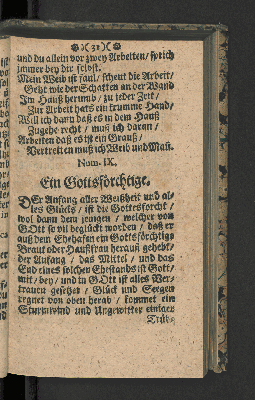 )( 31 )(
und du allein vor zwey Arbeiten / sprich
immer bey dir selbst.
Mein Weib ist faul / scheut die Arbeit /
Geht wie der Schatten an der Wand
Im Hauß herumb / zu jeder Zeit /
Zur Arbeit hats ein krumme Hand /
Will ich dann daß es in dem Hauß
Zugehe recht / muß ich daran /
Arbeiten daß es ist ein Grauß /
Vertretten muß ich Weib und Mañ.
Num. IX.
Ein Gottsförchtige.
DEr Anfang aller Weißheit und al-
les Glücks / ist die Gottesforcht /
wol dann dem jenigen / welcher von
GOtt so vil beglückt worden / daß er
auß dem Ehehafen ein Gottsförchtige
Braut oder Haußfrau herauß gehebt /
der Anfang / das Mittel / und das
End eines solchen Ehestands ist Gott /
mit / bey / und in GOtt ist alles Ver-
trauen gesetzet / Glück und Seegen
regnet von oben herab / kommet ein
Sturmwind und Ungewitter einiger
Trüb-